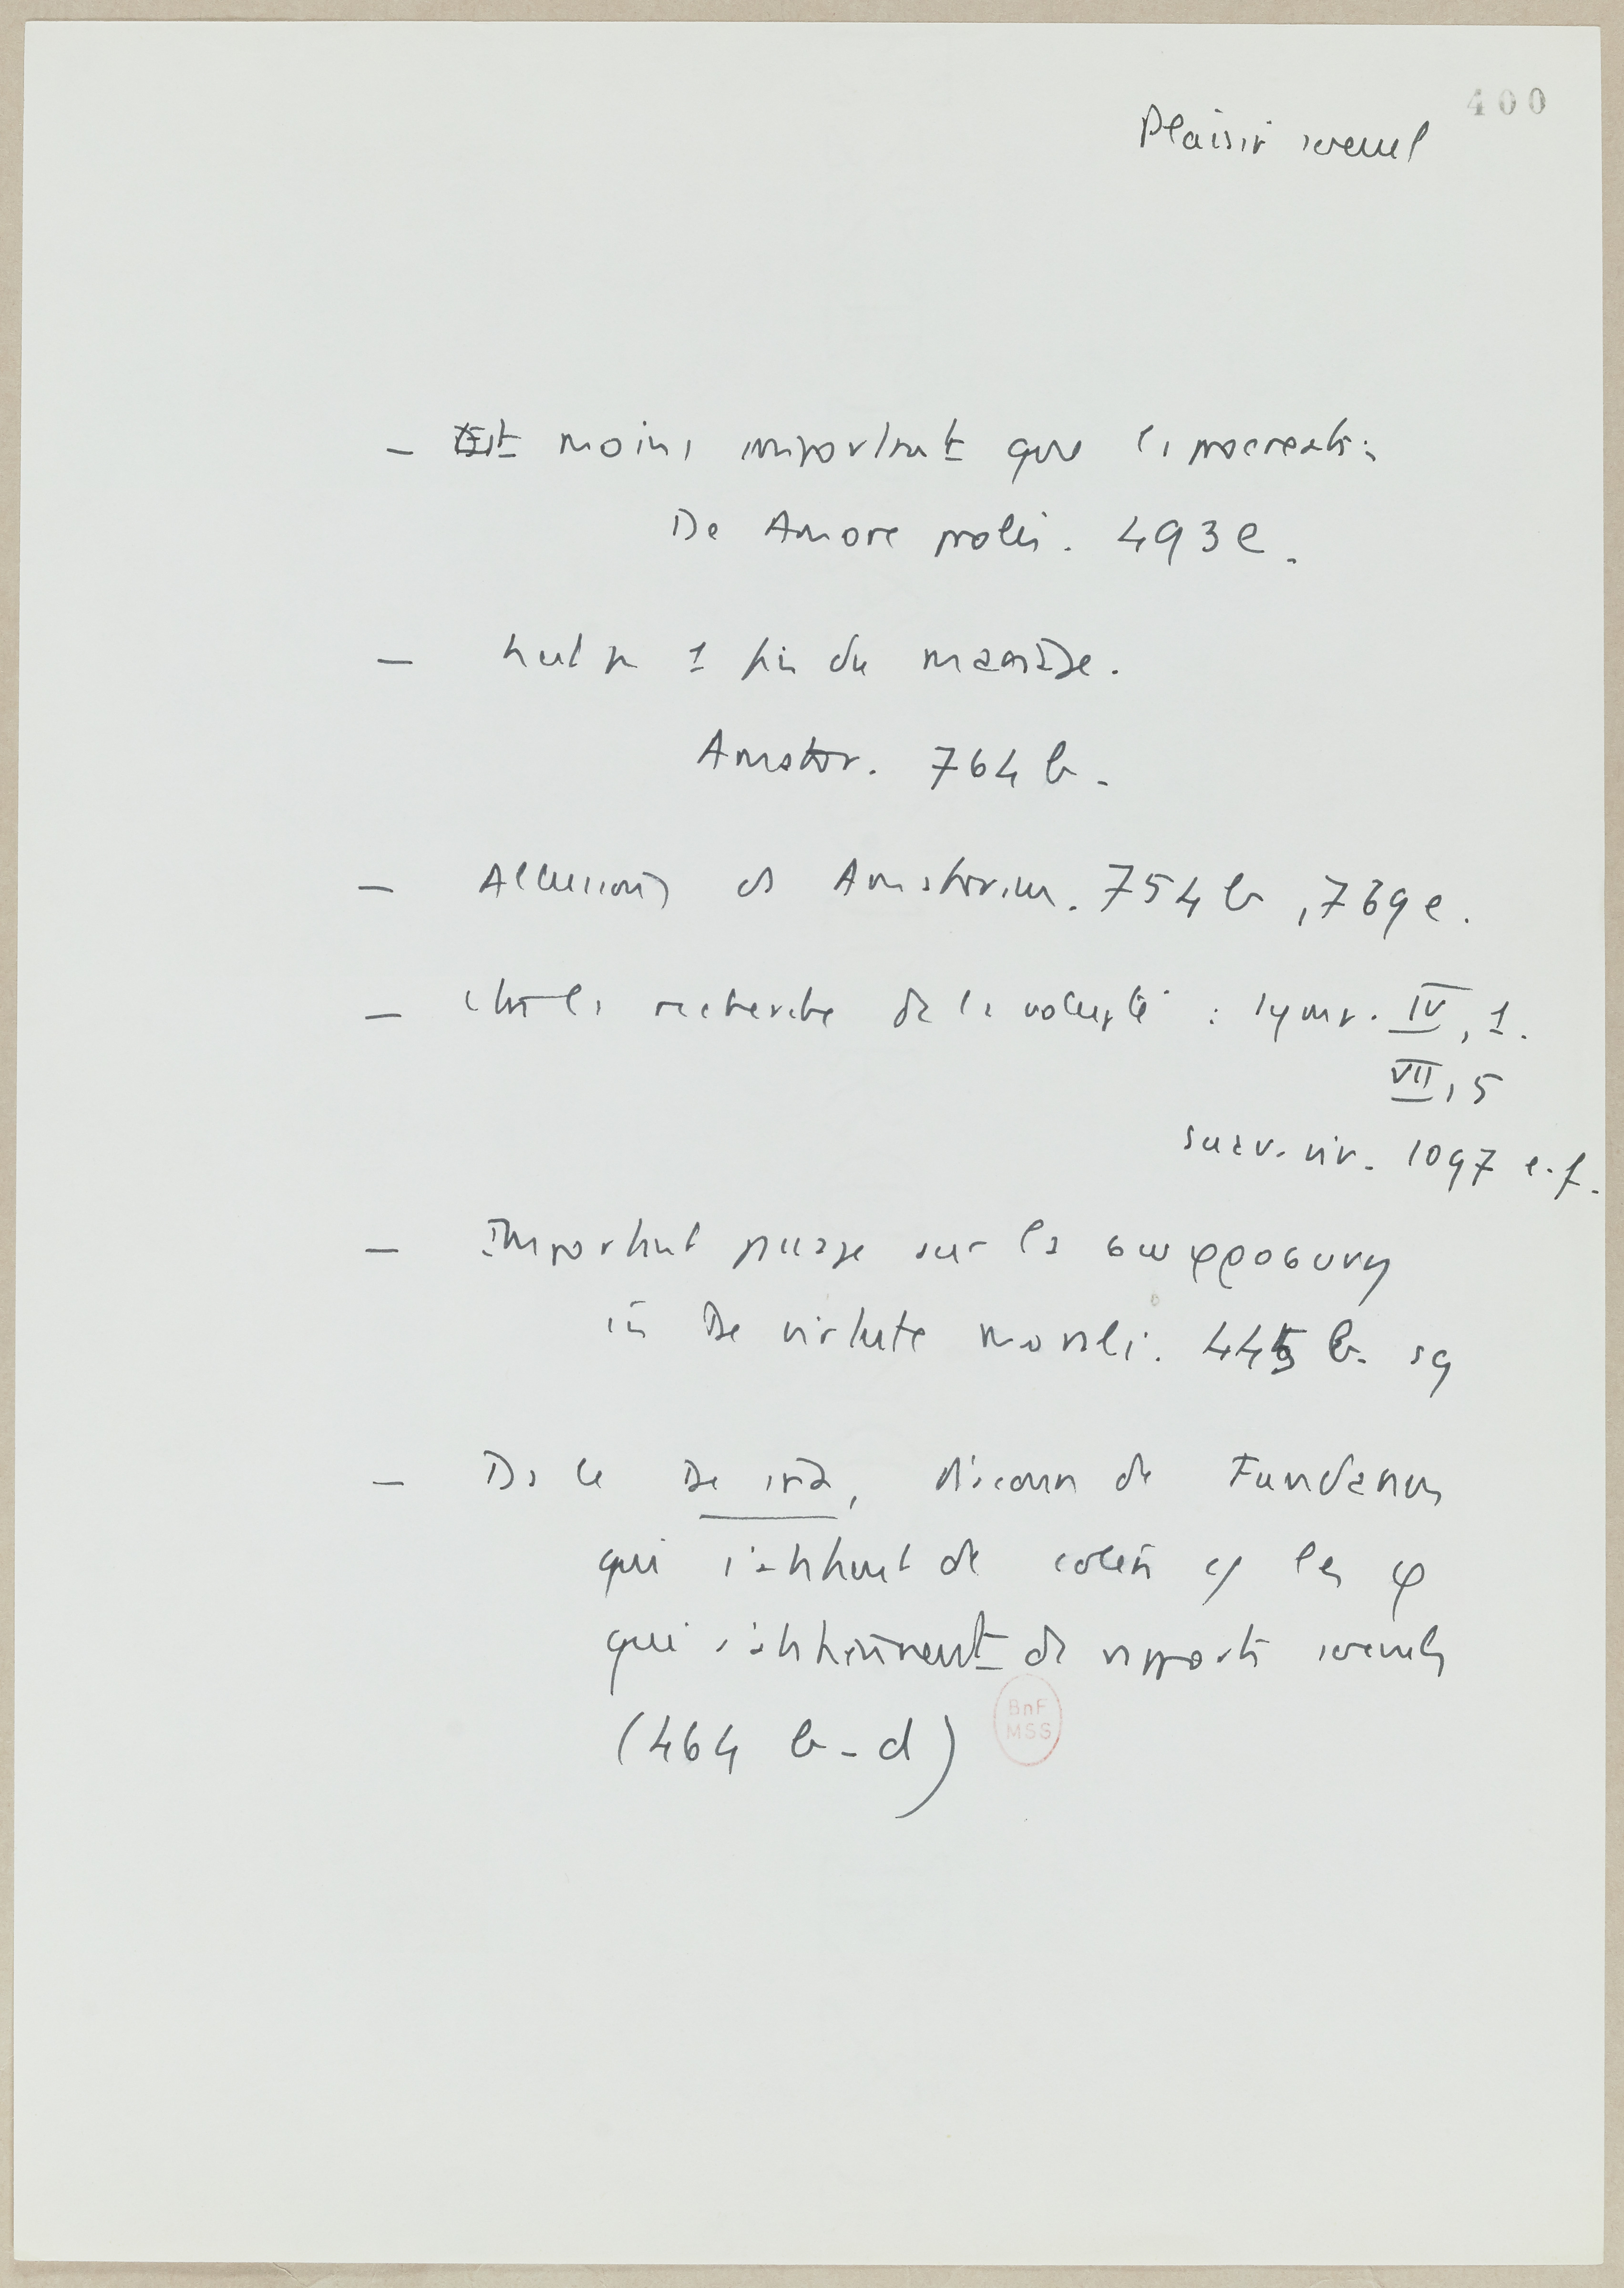 400
Plaisir sexuel
– Est moins important que la procreation
De Amore prolis. 493e.
– 1 fin du mariage.
Amator. 764 b.
– Allusions ds Amatorius. 754 b, 769e.
– la recherche de la volupté : symp. IV, 1.
VII, 5
suav. viv. 1097 e.f.
– Important passage sur la σωφροσυνη
in De virtute morali. 445 b. sq
– Ds le De ira, discours de Fundanus
qui s'abstient de colère cf les φ
qui s'abstiennent de rapports sexuels
(464 b-d)
BnF
MSS